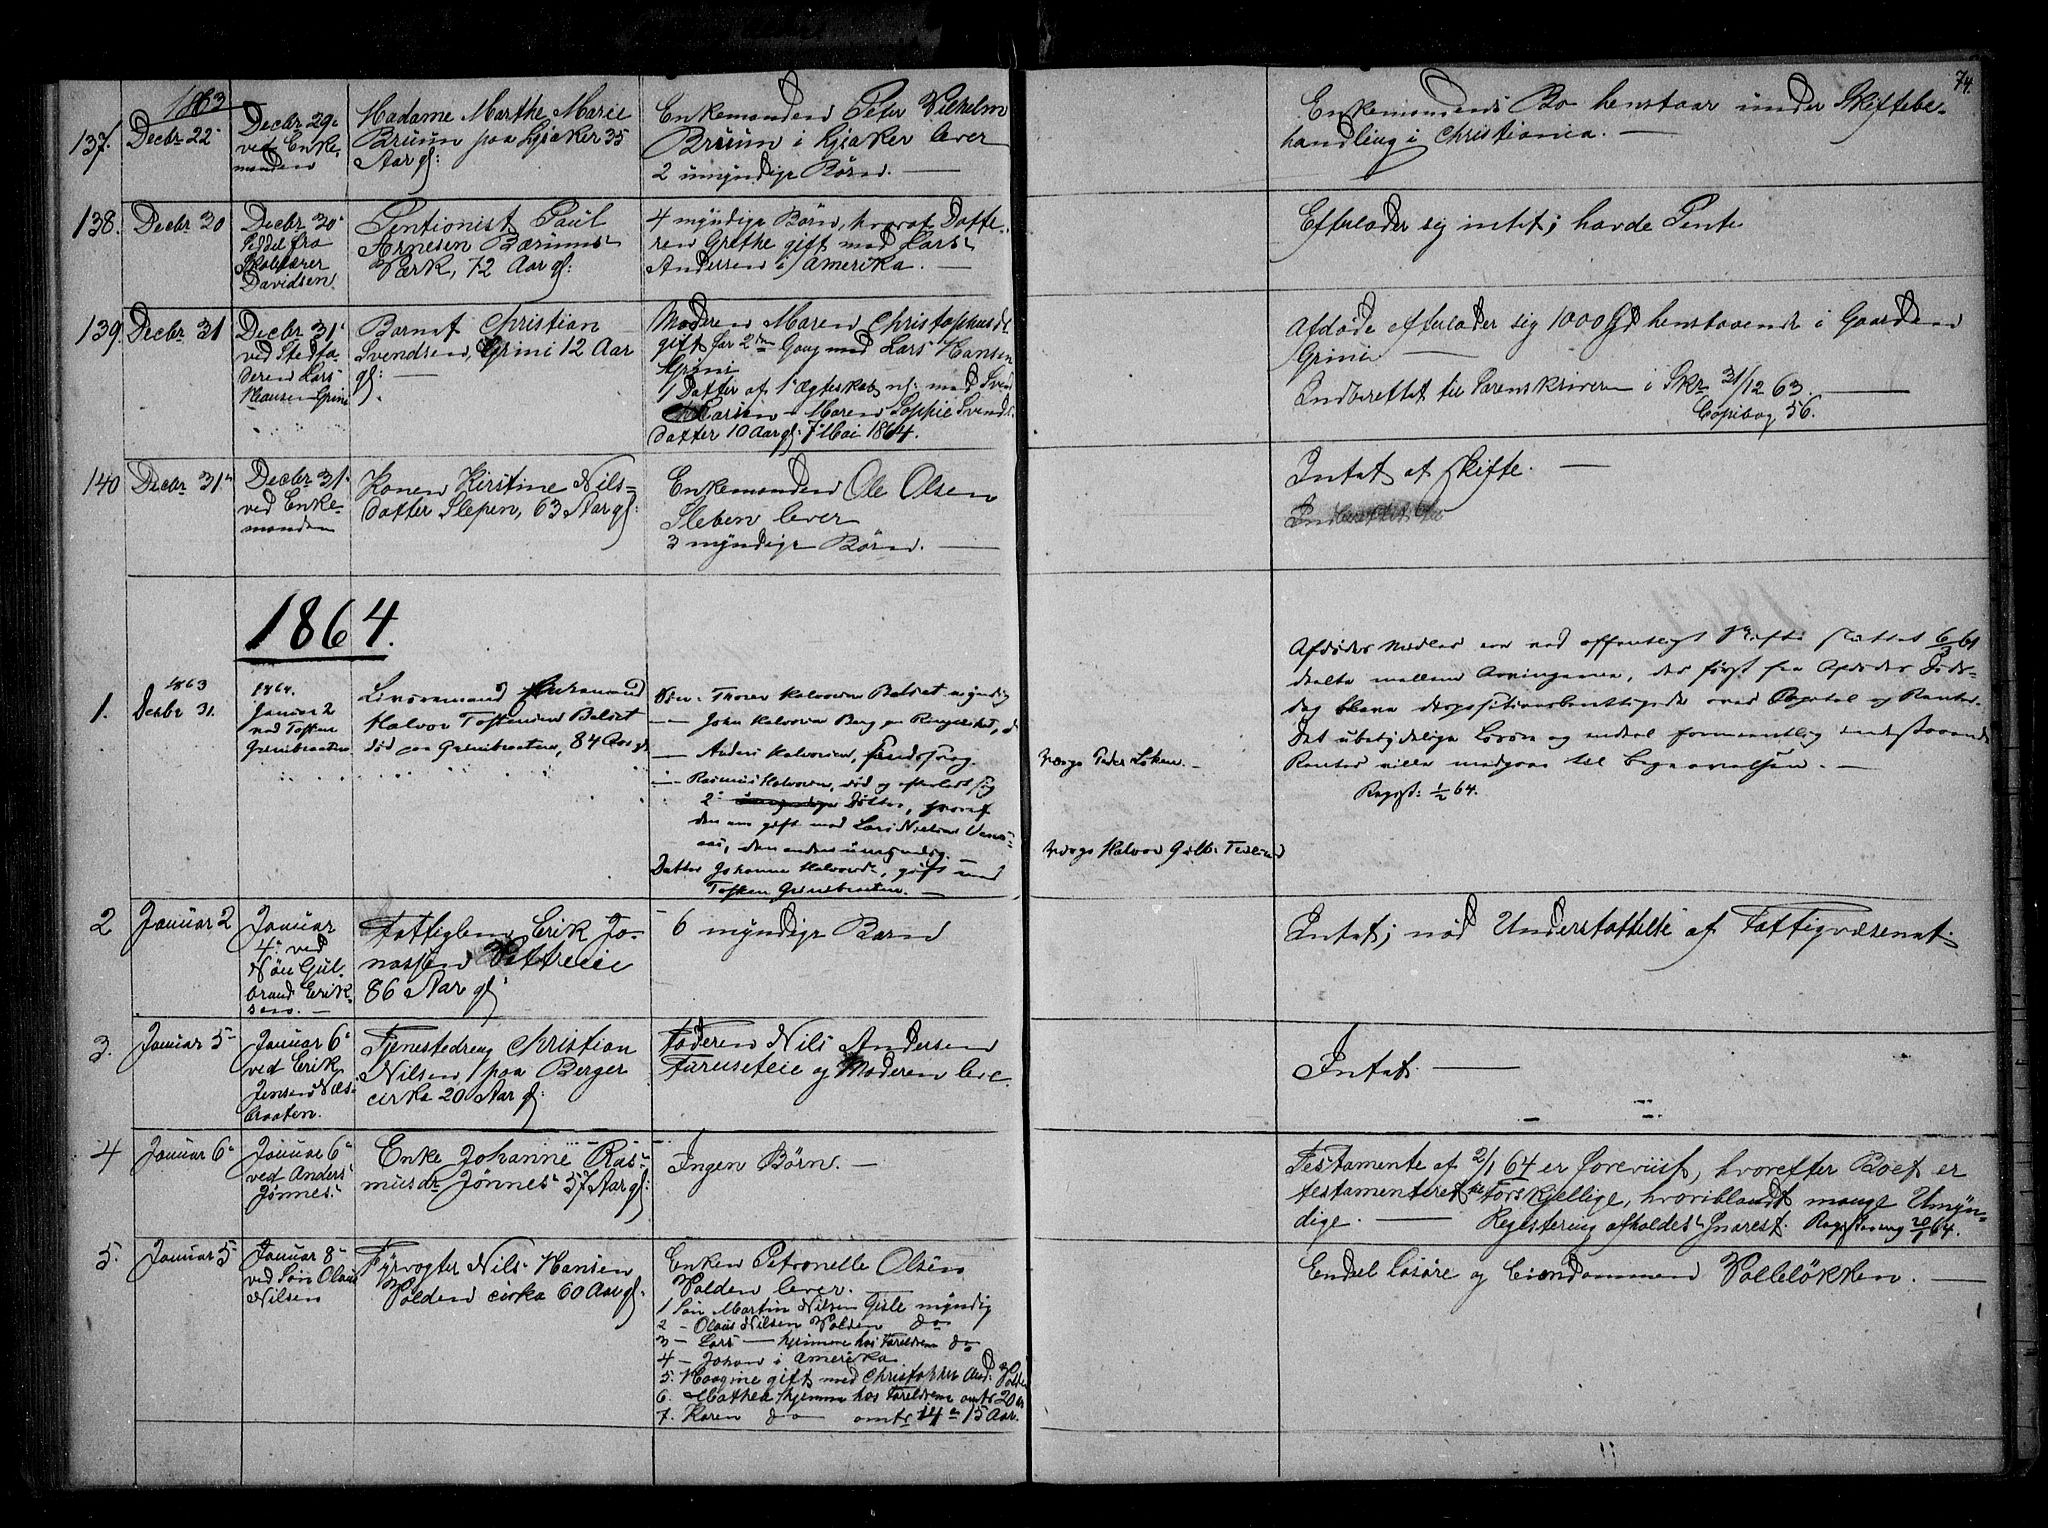 74.
1863
137.
Decbr 22
Decbr 29
ved Enke-
manden
Madame Marthe Marie
Bruun paa Lysaker 35
Aar gl:
Enkemanden Peter Vilhelm
Bruun i Lysaker lever
2 umyndige Børn. —
Enkemandens Bo henstaar under Skiftebe-
handling i Christiania. —
138.
Decbr 30
Decbr 30
Seddel fra
Skolelærer
Davidsen
Pentionist Paul
Arnesen Bærums
Værk, 72 Aar gl:
4 myndige Børn, hvoraf Datte-
ren Grethe gift med Lars
Andersen i Amerika. —
Efterlader sig intet; havde Pente
139.
Decbr 31
Decbr 31
ved Stedfa-
deren Lars
Hansen Grini
Barnet Christian
Svendsen, Grini 12 Aar
gl: —
Moderen Maren Christophersdt
gift for 2den Gang med Lars Hansen
Grini
1 Datter af 1 Ægteskab nl: med Svend
Larsen - Maren Sophie Svends-
datter 10 Aar gl: 7 Mai 1864.
Afdøde efterlader sig 1000 Spd henstaaende i Gaarden
Grini —
Indberettet til Sorenskriveren i Skr 31/12 63. —
Copibog 56.
140
Decbr 31
Decbr 31
ved Enke-
manden
Konen Kirstine Nils-
datter Slepen, 63 Aar gl:
Enkemanden Ole Olsen
Sleben lever
3 myndige Børn. —
Intet at skifte. —
1864.
1.
1863
Decbr 31.
1864.
Januar 2
ved Tosten
Grinibraaten
Halvor Tostensen Belset
død paa Grinibraaten, 84 Aar gl
Søn: Thorer Halvorsen Belset myndig
— John Halvorsen Berg paa Ringeriket, d
— Anders Halvorsen,
— Rasmus Halvorsen, død og efterladt sig
2 umyndige Døttre, hvoraf
den ene gift med Lars Nielsen
den anden umyndig. —
Datter Johanne Halvorsd, gift med
Tosten Grinibraaten. —
Værge Peder Løken. —
Værge Halvor Gulb:
Afdødes Midler ere ved offentligt Skifte sluttet 6/3 61
deelte mellem Arvingerne, der først fra Afdødes Døds-
dag bleve dispositionsberettigede over Capital og Renter.
Det ubetydelige Løsøre og endeel formeentlig indestaaende
Renter ville medgaae til Begravelsen. —
Regist: 1/2 64.
2
Januar 2
Januar
4 ved
Søn Gul-
brand Erik-
sen. —
Fattiglem Erik Jo-
nassen
86 Aar gl
6 myndige Børn
Intet; nød Understøttelse af Fattigvæsenet.
3.
Januar 5
Januar 6
ved Erik
Jensen Næs-
braaten.
Tjenestedreng Christian
Nilsen, paa Berger
cirka 20 Aar gl:
Faderen Nils Andersen
Faruseteie og Moderen leve.
Intet. —
4
Januar 6
Januar 6
ved Anders
Jønnes
Enke Johanne Ras-
musdr Jønnes 57 Aar gl:
Ingen Børn. —
Testamente af 2/1 64 er forevist, hvorefter Boet er
testamenteret til Forskjellige, hvoriblandt mange Umyn-
dige. — Registering afholdes snarest. Registrering 20/1 64.
5.
Januar 5
Januar 8
ved Søn Olaus
Nilsen
Fyrvogter Nils Hansen
Volden cirka 60 Aar gl.
Enken Petronelle Olsen
Volden lever. —
1 Søn Martin Nilsen Gisle myndig
2 - Olaus Nilsen Volden do
3 - Lars — hjemme hos Foreldrene do
4 - Johan i Amerika
5. Haagine gift med Christopher And: Volden
6. Mathea hjemme hos Foreldrene omtr 20 Aar
7. Karen do omtr 14 a 15 Aar.
Endeel Løsøre og Eiendommen Volleløkken. —